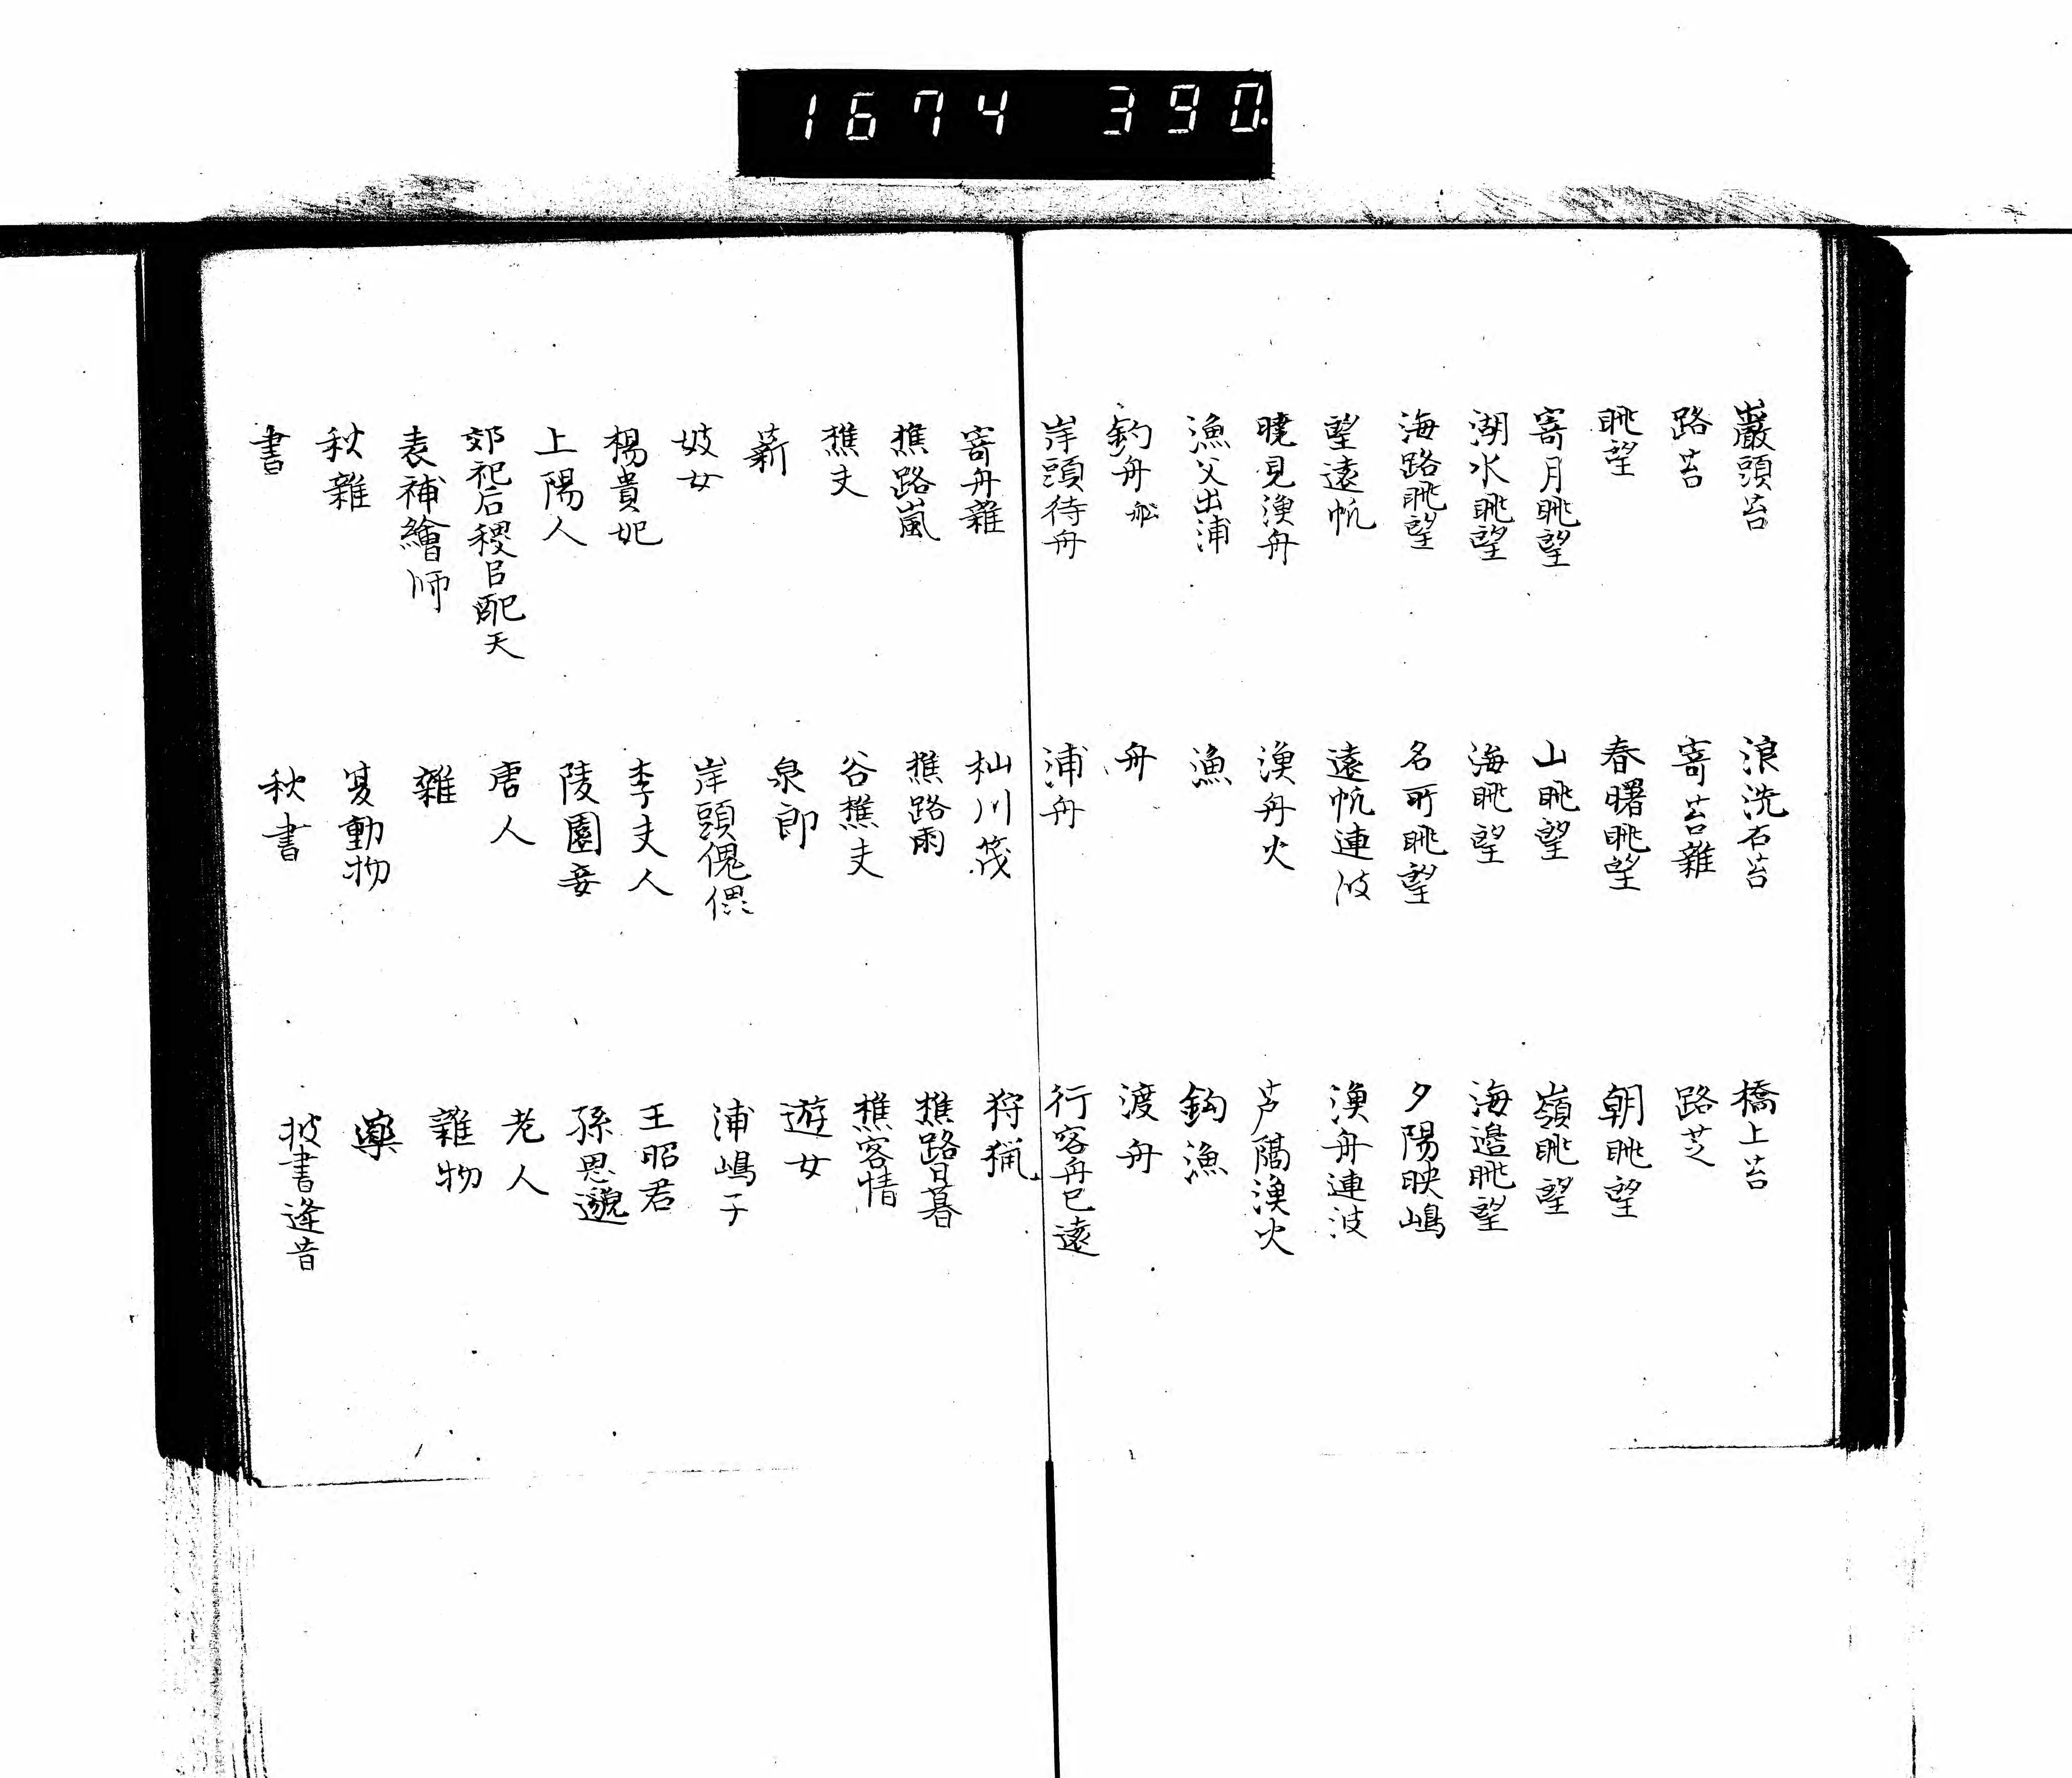 1674 390.
巌頭苔 浪洗石苔 橋上苔
路苔 寄苔雜 路芝
眺望 春曙眺望 朝眺望
寄月眺望 山眺望 嶺眺望
湖水眺望 海眺望 海邉眺望
海路眺望 名所眺望 夕陽映嶋
望遠帆 遠帆連波 漁舟連波
曉見漁舟 漁舟火 芦隔漁火
漁父出浦 漁 釣漁
釣舟舩 舟 渡舟
岸頭待舟 浦舟 行客舟已遠
寄舟雜 杣川筏 狩猟
樵路嵐 樵路雨 樵路日暮
樵夫 谷樵夫 樵客情
薪 泉郎 遊女
妓女 岸頭傀儡 浦嶋子
楊貴妃 李夫人 王昭君
上陽人 陵園妾 孫思邈
郊祀后稷以配天 唐人 老人
表補繪師 雜 雜物
秋雜 夏動物 藥
書 秋書 披書逢昔